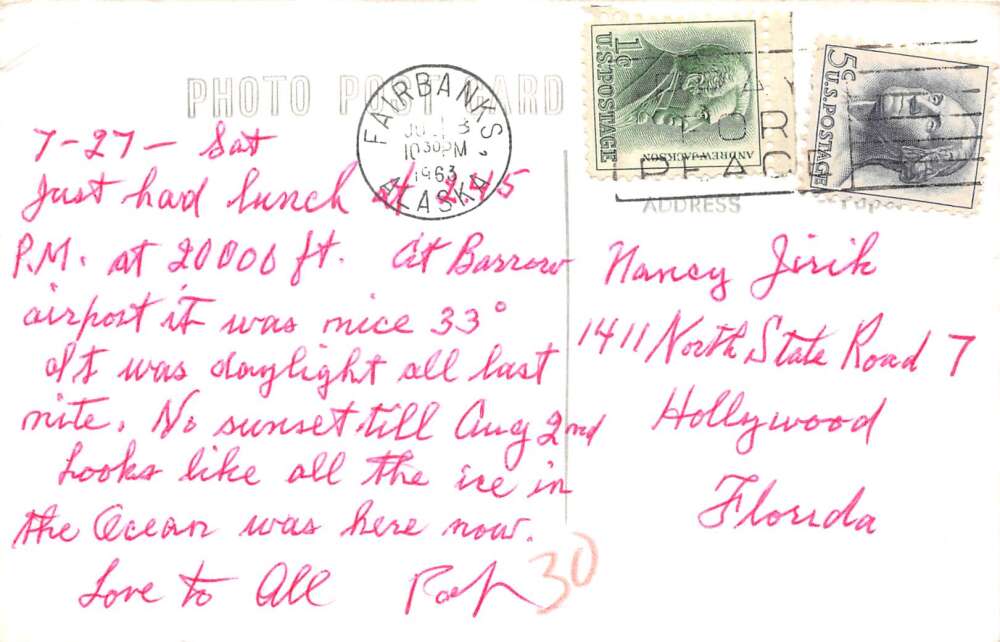 PHOTO POST CARD
FAIRBANKS,
10 30 PM
1963
ALASKA
1¢
U.S. POSTAGE
ANDREW JACKSON
5¢
U.S. POSTAGE
PRAY
FOR
PEACE
ADDRESS
7-27- Sat
Just had lunch at
P.M. at 20000 ft. At Barrow
airport it was nice 33°
It was daylight all last
nite. No sunset till Aug 2nd
Looks like all the ice in
the Ocean was here now.
Love to All
30
Nancy Jirik
1411 North State Road 7
Hollywood
Florida